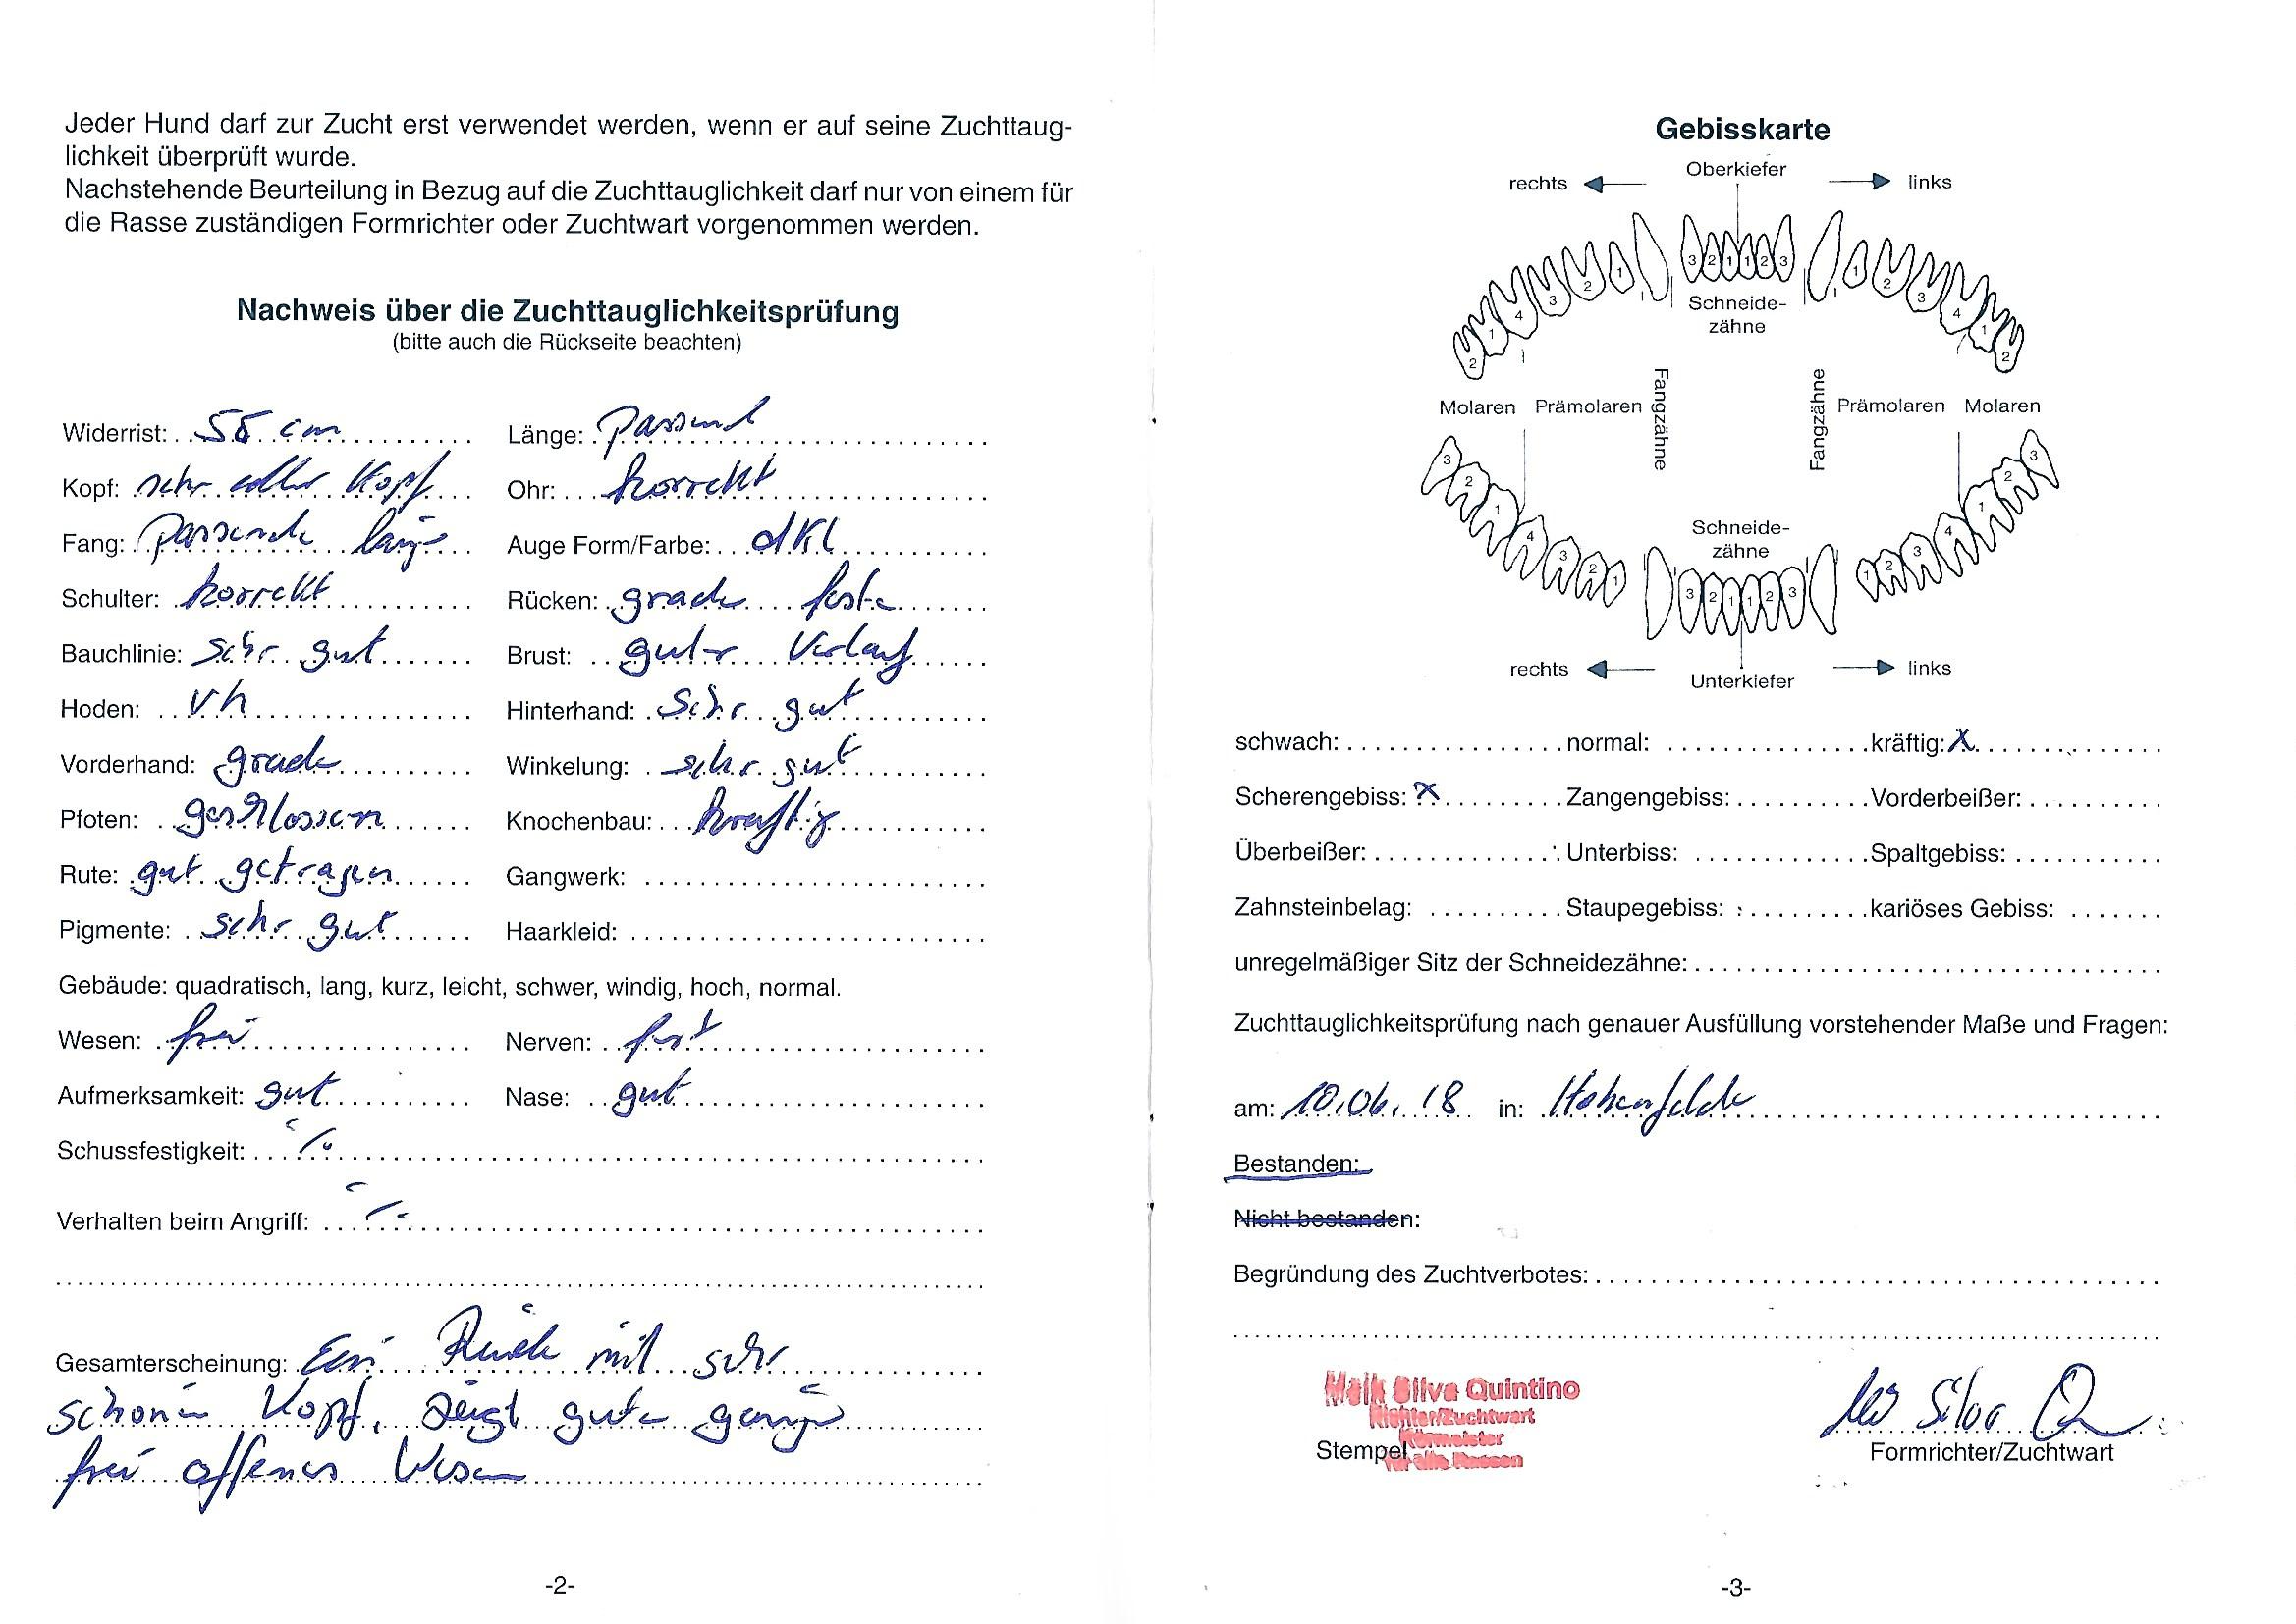 Jeder Hund darf zur Zucht erst verwendet werden, wenn er auf seine Zuchttaug-
lichkeit überprüft wurde.
Nachstehende Beurteilung in Bezug auf die Zuchttauglichkeit darf nur von einem für
die Rasse zuständigen Formrichter oder Zuchtwart vorgenommen werden.
Nachweis über die Zuchttauglichkeitsprüfung
(bitte auch die Rückseite beachten)
Widerrist: cm Länge: passend
Kopf: sehr edler Kopf Ohr: korrekt
Fang: passende länge Auge Form/Farbe: dkl
Schulter: korrekt Rücken: grade feste
Bauchlinie: sehr gut Brust: guter Verlauf
Hoden: vh Hinterhand: sehr gut
Vorderhand: grade Winkelung: sehr gut
Pfoten: geschlossen Knochenbau: kräftig
Rute: gut getragen Gangwerk:
Pigmente: sehr gut Haarkleid:
Gebäude: quadratisch, lang, kurz, leicht, schwer, windig, hoch, normal.
Wesen: frei Nerven: fest
Aufmerksamkeit: gut Nase: gut
Schussfestigkeit: ./.
Verhalten beim Angriff: ./.
Gesamterscheinung: Ein Rüde mit sehr
schönen Kopf, zeigt gute gänge
frei offenes Wesen
-2-
Gebisskarte
rechts Oberkiefer links
3 2 1 1 2 3
2 1 4 3 2 1 1 2 3 4 1 2
Schneide-
zähne
Molaren Prämolaren Fangzähne Fangzähne Prämolaren Molaren
3 2 1 4 3 2 1 1 2 3 4 1 2 3
Schneide-
zähne
3 2 1 1 2 3
rechts Unterkiefer links
schwach: normal: kräftig: x
Scherengebiss: x Zangengebiss: Vorderbeißer:
Überbeißer: Unterbiss: Spaltgebiss:
Zahnsteinbelag: Staupegebiss: kariöses Gebiss:
unregelmäßiger Sitz der Schneidezähne:
Zuchttauglichkeitsprüfung nach genauer Ausfüllung vorstehender Maße und Fragen:
am: 10.06.18 in: Hohenfelde
Bestanden:
Nicht bestanden:
Begründung des Zuchtverbotes:
Maik Silva Quintino
Richter/Zuchtwart
Körmeister
für alle Rassen
Stempel
Silva
Formrichter/Zuchtwart
-3-